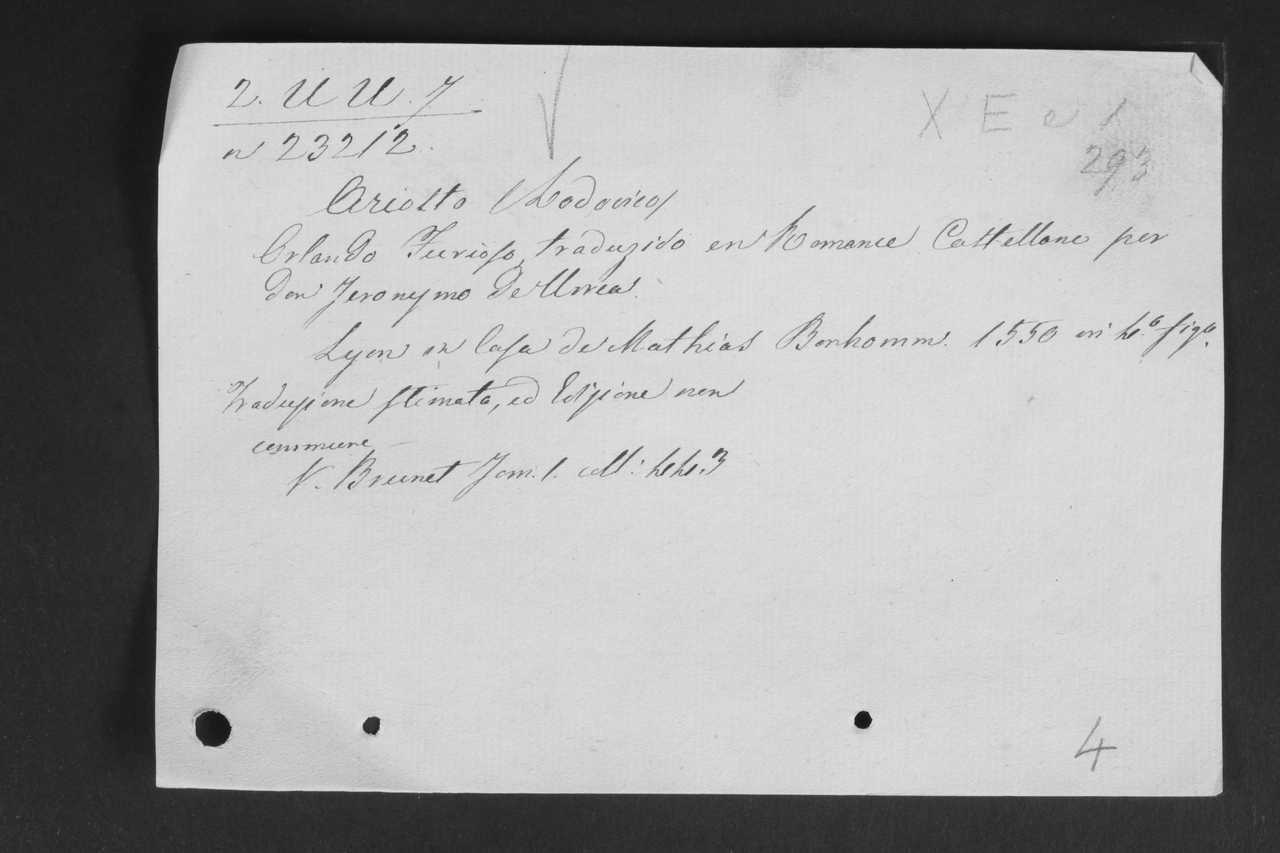 2. U U. 7
n 23212.
X E e 1
293
Ariosto (Lodovico)
Orlando Furioso, traduzido en Romance Castellano por
don Jeronymo de Urrea.
Lyon en Casa de Mathias Bonhomm. 1550 in 4.º fig.º
Traduzione stimata, ed Edizione non
commune
V. Brunet Tom. 1. coll: 44.3
4